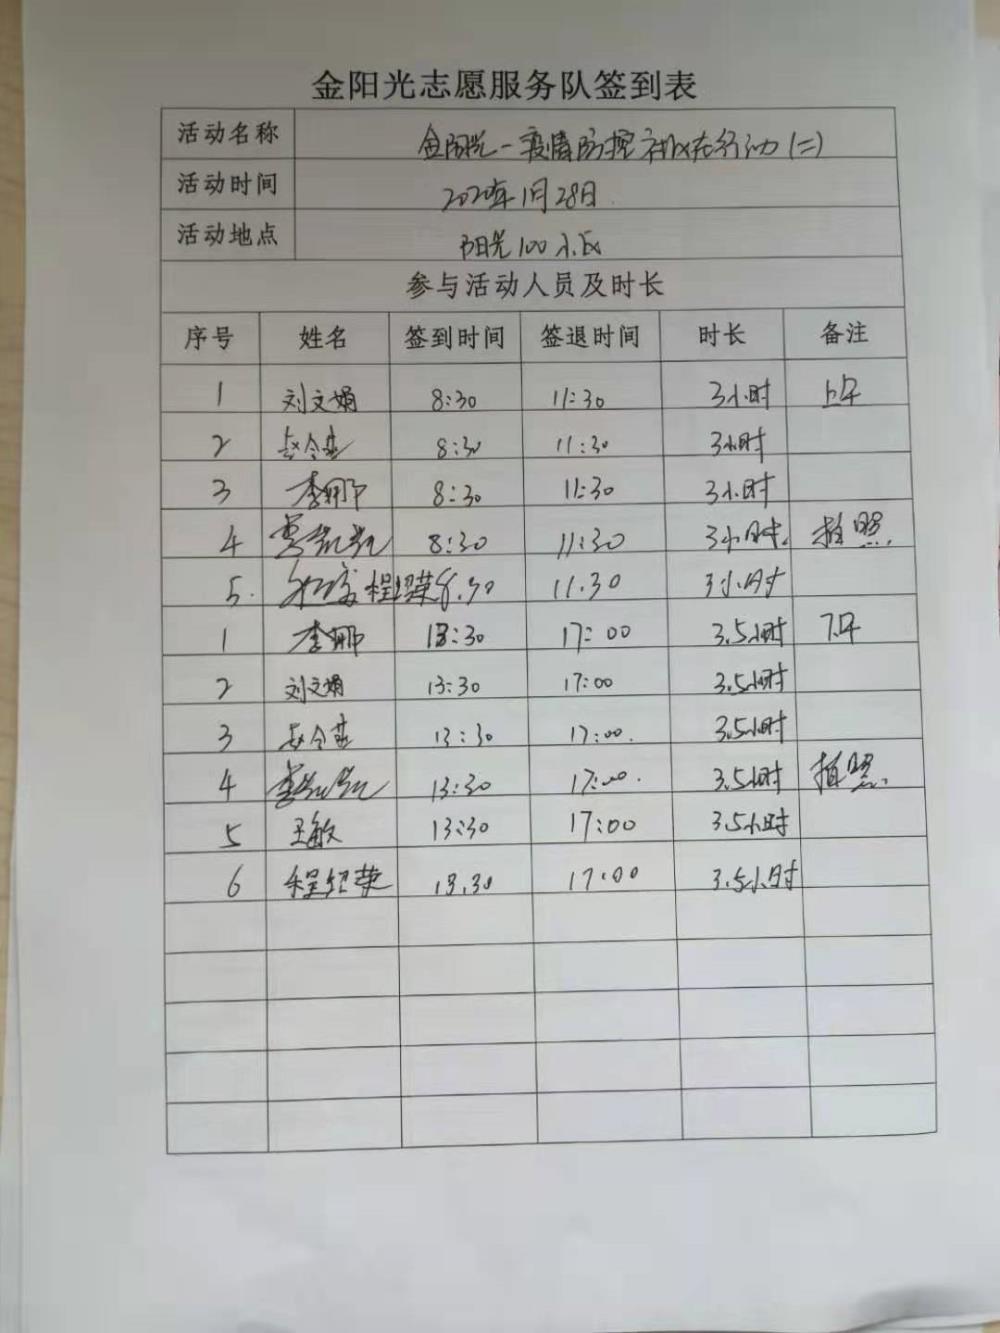 金阳光志愿服务队签到表
活动名称 金阳光一疫情防控 我们在行动(二)
活动时间 2020年1月28日
活动地点 阳光100小区
参与活动人员及时长
序号 姓名 签到时间 签退时间 时长 备注
1 刘文娟 8:30 11:30 3小时 上午
2 赵令燕 8:30 11:30 3小时
3 李娜 8:30 11:30 3小时
4 8:30 11:30 3小时. 拍照
5. 程绍荣 8.30 11.30 3小时
1 李娜 13:30 17:00 3.5小时 下午
2 刘文娟 13:30 17:00 3.5小时
3 赵令燕 13:30 17:00. 3.5小时
4 13:30 17:00. 3.5小时 拍照
5 王敏 13:30 17:00 3.5小时
6 程绍荣 13.30 17:00 3.5小时